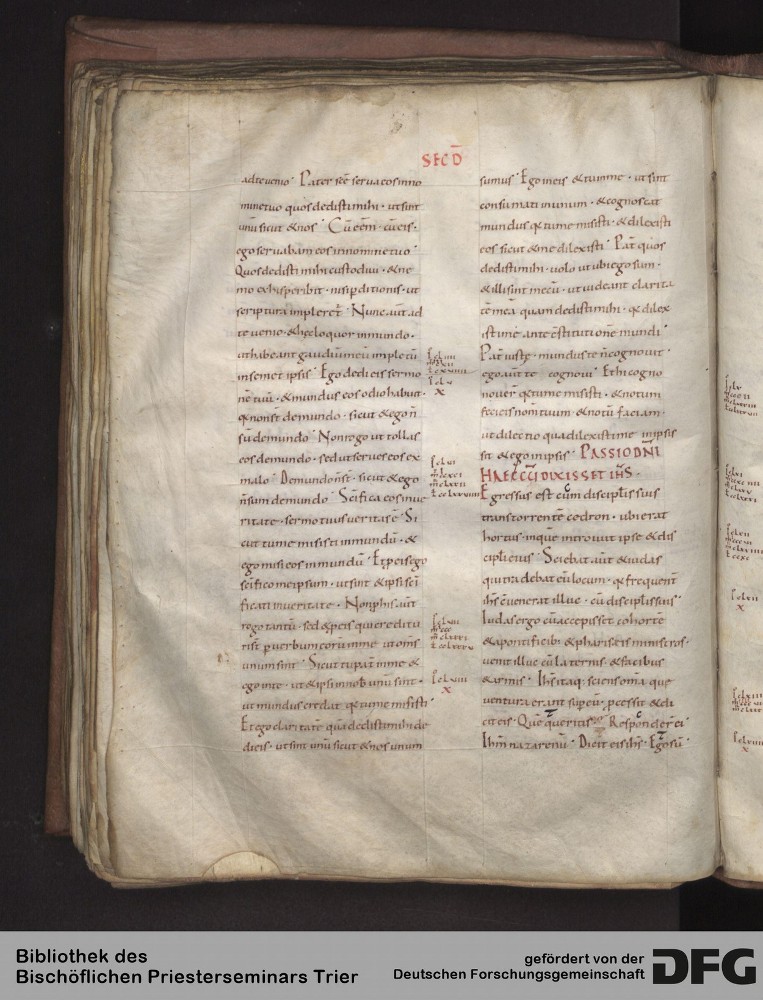 SECD̄
ad te venio · Pater sc̄e serva eos in no
mine tuo quos dedisti mihi · ut sint
unū sicut & nos · Cū eēm · cū eis ·
ego servabam eos in nomine tuo ·
Quos dedisti mihi custodivi · & ne
mo ex his peribit · nisi p̄ditionis · ut
scriptura impleret᷑ · Nunc aūt ad
te venio · & hęc loquor in mundo ·
ut habeant gaudiū meū impletū
in semet ipsis · Ego dedi eis sermo
nē tuū · & mundus eos odio habuit ·
q̄ non sn̄t de mundo · sicut & ego n̄
sū de mundo · Non rogo ut tollas
eos de mundo · sed ut serves eos ex
malo · De mundo n̄ sn̄t · sicut & ego
n̄ sum de mundo · Sc̄ifica eos in ve
ritate · sermo tuus veritas ē · Si
cut tu me misisti in mundū · &
ego misi eos in mundū · Et p̄ eis ego
sc̄ifico me ipsum · ut sint & ipsi sc̄i
ficati in veritate · Non p̄ his aūt
rogo tantū · sed & p̄ eis qui credituri
sn̄t p̄ verbum eorū in me · ut om̄s
unum sint · Sicut tu pat̄ in me &
ego in te · ut & ipsi in nob̄ unū sint ·
ut mundus credat q̄ tu me misisti ·
Et ego claritatē quā dedisti mihi de
di eis · ut sint unū sicut & nos unum
sumus · Ego in eis & tu in me · ut sint
consumati in unum · & cognoscat
mundus q̄ tu me misisti · & dilexisti
eos sicut & me dilexisti · Pat̄ quos
dedisti mihi · volo ut ubi ego sum ·
& illi sint mecū · ut videant clarita
tē meā quam dedisti mihi · q̄ dilex
isti me ante c̄stitutionē mundi ·
Pat̄ iustę · mundus te n̄ cognovit ·
ego aūt te cognovi · Et hi cogno
verr̄ q̄ tu me misisti · & notum
feci eis nom̄ tuum · & notū faciam ·
ut dilectio qua dilexisti me in ipsis
sit & ego in ipsis · PASSIO DN̄I
HAEC CŪ DIXISSET IH̄S ·
Egressus est cum discipulis suis
trans torrentē cedron · ubi erat
hortus · in quē introivit ipse & dis
cipli eius · Sciebat aūt & iudas
qui tradebat eū locum · q̄ frequent̄
ih̄s c̄venerat illuc · cū discipulis suis ·
Iudas ergo cū accepisset cohortē
& a pontificib; & phariseis ministros ·
venit illuc cū laternis · & facibus
& armis · Ih̄s itaq; sciens om̄a que
ventura erant sup̄ eū · p̄cessit & di
cit eis · Quē queritis · Responder̄ ei ·
Ih̄m nazarenū · Dicit eis ih̄s · Ego sū ·
Bibliothek des
Bischöflichen Priesterseminars Trier
gefördert von der
Deutschen Forschungsgemeinschaft
DFG